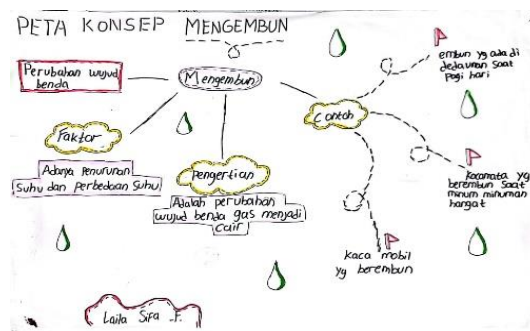 PETA KONSEP MENGEMBUN
Perubahan wujud
benda
Mengembun
Faktor
Adanya penurunan
Suhu dan perbedaan suhu
Pengertian
Adalah perubahan
wujud benda gas menjadi
cair
Contoh
embun yg ada di
dedaunan saat
pagi hari
kacamata yg
berembun saat
minum minuman
hangat
kaca mobil
yg berembun
Laila Sifa .F.